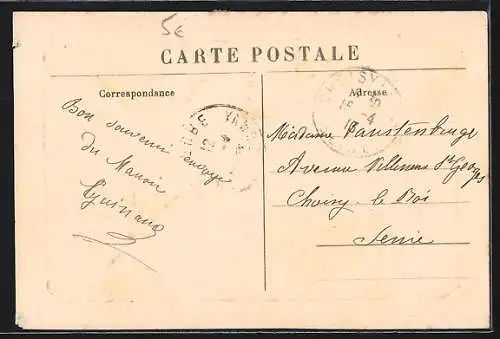 5€
CARTE POSTALE
Correspondance
Adresse
Bon souvenir
envoyé
du Manoir
Madame
Avenue Villeneuve St Georges
Choisy le Roi
Seine